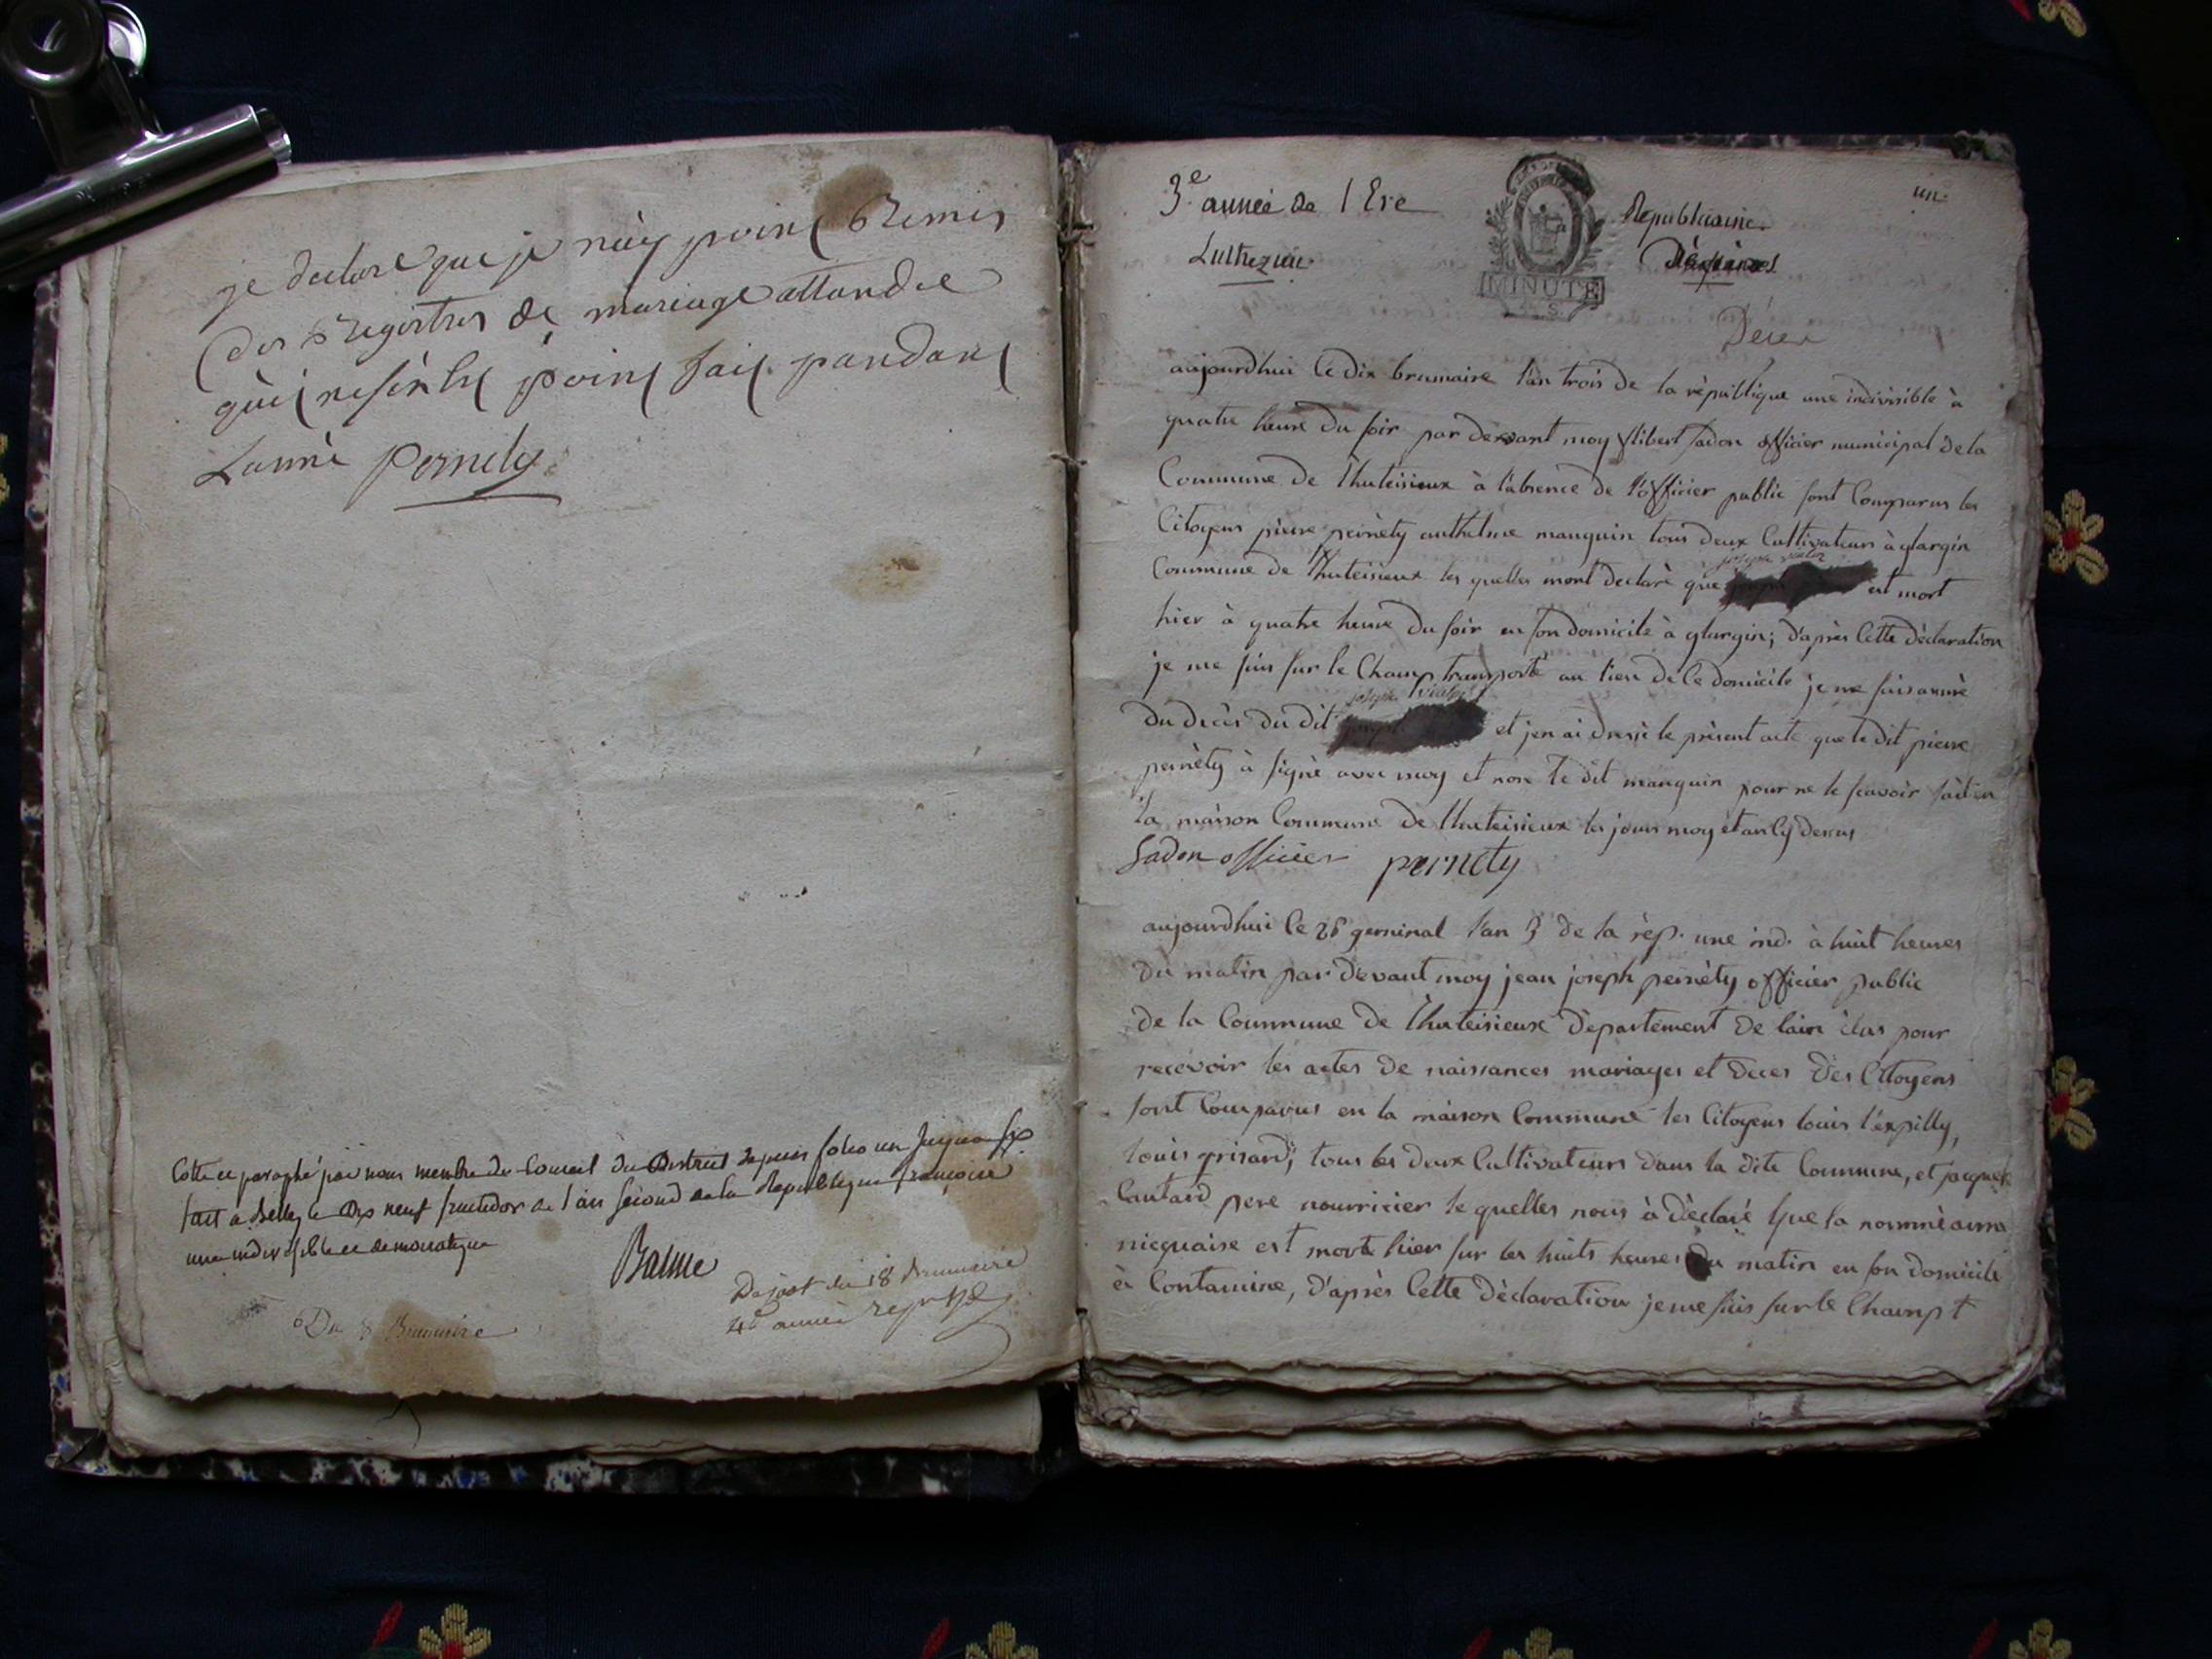 je declare que je nay point Remis
des Registres de mariage attandu
qui point fait pandant
Lannè Pernety
Cotté et paraphé par nous membre du Conseil du District depuis folio un jusqua six
fait a Belley le Dix neuf fructidor de l'an second de la Republique françoise
une indivisible et democratique
Balme
Depost du 18 Brumaire
4e année
Du 8 Brumaire
3e année de l'Ere
Republicaine
un
Luthezieu
MINUTE
Décè
aujourdhui le dix brumaire l'an trois de la rèpublique une indivisible à
quatre heure du soir par devant moy flibert sadon officier municipal de la
Commune de lhuteisieux à l'absence de l'officier public sont Comparus les
Citoyens pierre pernèty anthelme manguin tous deux Cultivateurs à glargin
joseph
Commune de lhuteisieux les quelles mont declarè que est mort
hier à quatre heure du soir en son domicile à glargin; d'après Cette dèclaration
je me suis sur le Champ transporté au lieu de Ce domicile je me suis assurè
joseph
du decès du dit et jen ai dressè le prèsent acte que le dit pierre
pernèty à signè avec moy et non le dit manguin pour ne le scavoir fait en
la màison Commune de lhuteisieux les jours moy et an Cy dessus
Sadon officier pernety
aujourdhui le 26 germinal l'an 3 de la rèp. une ind. à huit heures
du matin par devant moy jean joseph pernèty officier public
de la Commune de lhuteisieux dèpartement de lain èlus pour
recevoir les actes de naissances mariages et deces des Citoyens
sont Comparus en la màison Commune les Citoyens louis l'expilly,
louis grisard, tous les deux Cultivateurs dans la dite Commune, et jacques
Cautard pere nourricier le quelles nous à dèclarè que la nommè anna
nicquaise est morte hier sur les huits heures du matin en son domicile
à Contamine, d'après Cette dèclaration je me suis sur le Champt